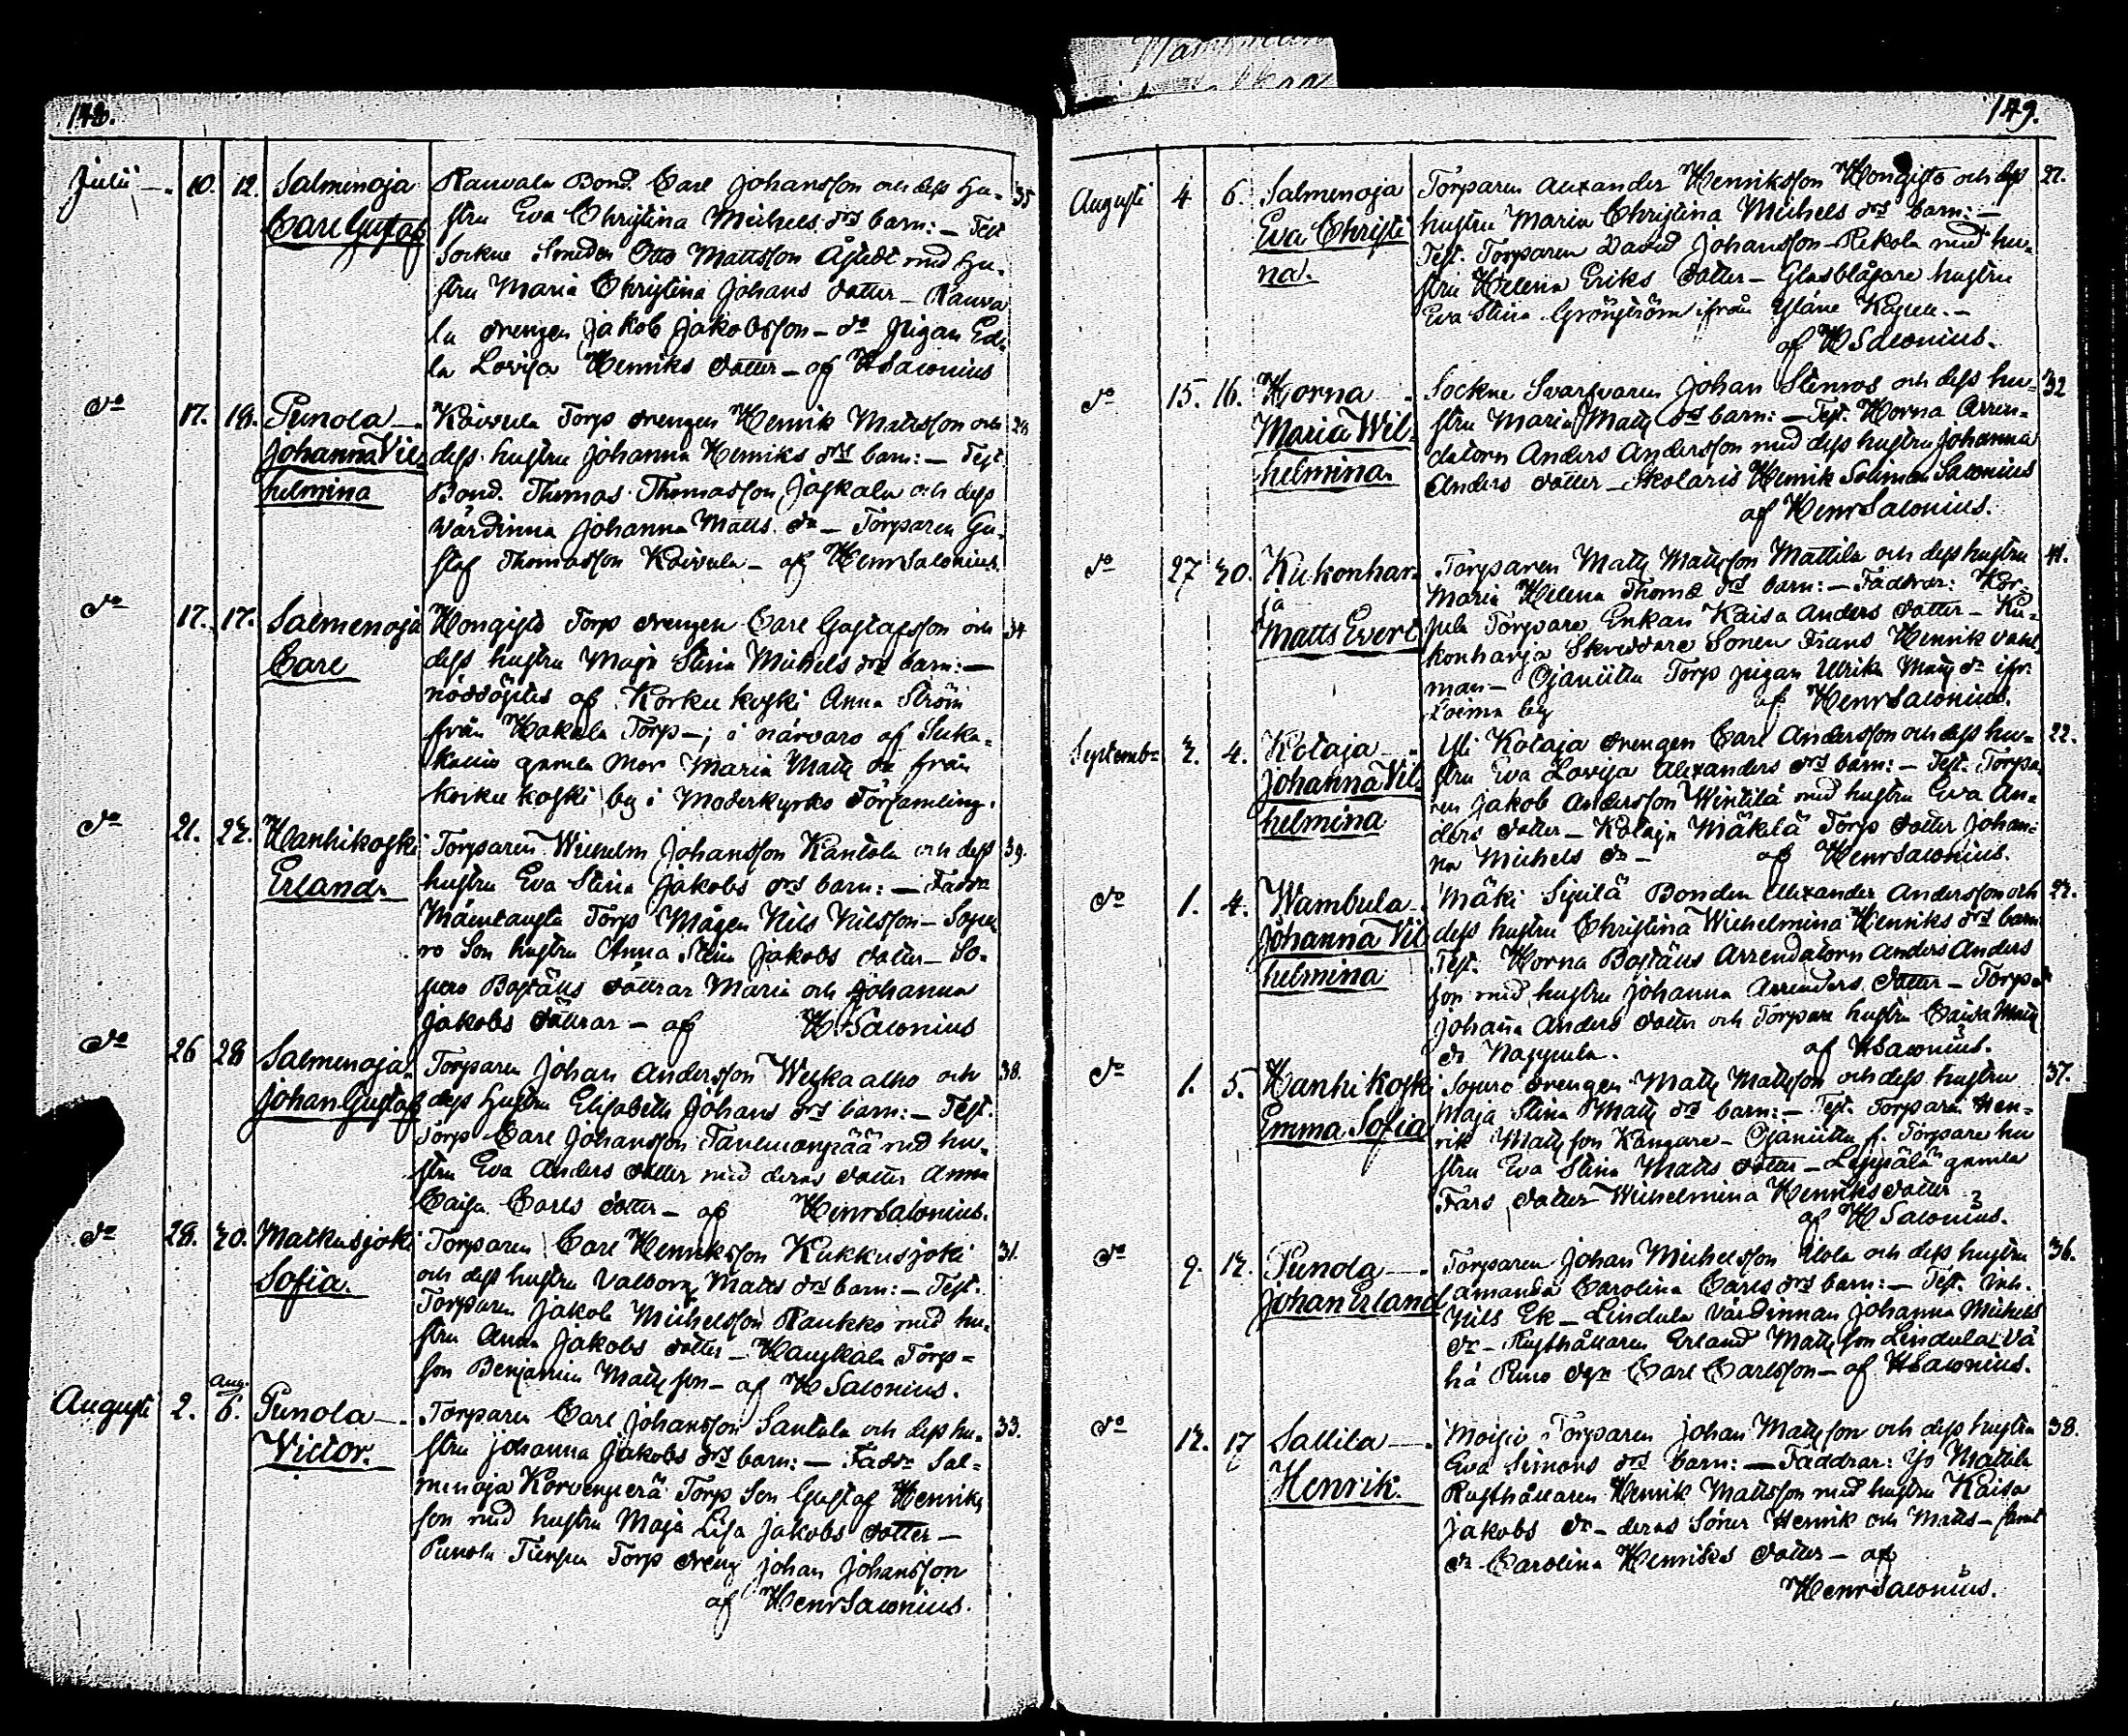 148.
Julii — 10. 12. Salmenoja Rauvala Bond. Carl Johansson och dess hu- 35
Carl Gustaf stru Eva Christina Michels drs barn: — Test
Sockne Smeden Otto Mattsson Åstedt med hu-
stru Maria Christina Johans dotter — Rauva
la drengen Jakob Jakobsson — do pigan Ed-
la Lovisa Henriks dotter — af HSalonius
do 17. 19. Punola — Koivula Torp drengen Henrik Mattsson och 28
Johanna Vil- dess hustru Johanna Henriks drs barn: — Test.
helmina Bond. Thomas Thomasson Jaskala och dess
värdinna Johanna Matts dr — Torparen Gu-
staf Thomasson Koivula — af HenrSalonius.
do 17. 17. Salmenoja Hongisto Torp drengen Carl Gustafsson och 34
Carl dess hustru Maja Stina Michels drs barn: —
nöddöptes af Korkeekoski Anna Ström
från Hakala Torp —; i närvaro af
gamla mor Maria Matts dr från
Korkeekoski by i Moderkyrko Församling.
do 21. 22. Hanhikoski Torparen Wilhelm Johansson Kantola och dess 39.
Erland. hustru Eva Stina Jakobs drs barn: — Faddr
Torp Mågen Nils Nilsson — Sopu
ro Son hustru Anna Stina Jakobs dotter — So-
puro Boställs döttrar Maria och Johanna
Jakobs döttrar — af HSalonius
do 26 28 Salmenoja Torparen Johan Andersson Weskaalho och 38.
Johan Gustaf dess hustru Elisabeth Johans drs barn: — Test.
Torp Carl Johansson med hu-
stru Eva Anders dotter med deras dotter Anna
Caisa Carls dotter — af HenrSalonius.
do 29. 30. Matkusjoki Torparen Carl Henriksson Kukkusjoki 31.
Sofia. och dess hustru Valborg Matts drs barn: — Test.
Torparen Jakob Michelsson Raukko med hu-
stru Anna Jakobs dotter — Torp-
son Benjamin Mattsson — af HSalonius.
Augusti 2. Aug. 6. Punola — Torparen Carl Johansson Santala och dess hu- 33.
Victor. stru Johanna Jakobs drs barn: — Faddr Sal-
menoja Korvenperä Torp Son Gustaf Henriks
son med hustru Maja Lisa Jakobs dotter —
Punola Torp dreng Johan Johansson
af HenrSalonius.
149.
Augusti 4 6. Salmenoja Torparen Alexander Henriksson Hongisto och dess 27.
Eva Christi hustru Maria Christina Michels drs barn: —
na. Test. Torparen David Johansson Rekola med hu-
stru Helena Eriks dotter — Glasblåsare hustru
Eva Stina Grönström ifrån Yläne Kapell. —
af HSalonius.
do 15. 16. Horna — Sockne Svarfvaren Johan Stenroos och dess hu- 32
Maria Wil- stru Maria Matts drs barn: — Test. Horna Arren-
helmina. datorn Anders Andersson med dess hustru Johanna
Anders dotter — Skolaris Henrik Salonius
af HenrSalonius.
do 27 30. Kukonhar- Torparen Matts Mattsson Mattila och dess hustru 41.
ja Maria Helena Thomæ drs barn: — Faddrar:
Matts Evert Torpare Enkan Kaisa Anders dotter — Ku-
konharja Skreddare Sonen Frans Henrik
man — Ojaniittu Torp pigan Ulrika Matts dr ifr.
Loima by af HenrSalonius.
September 2. 4. Kotaja — Yli Kotaja drengen Carl Andersson och dess hu- 22.
Johanna Vil- stru Eva Lovisa Alexanders drs barn: — Test. Torpa
helmina ren Jakob Andersson Winttilä med hustru Eva An-
ders dotter — Kotaja Mäkilä Torp dotter Johan-
na Michels dr — af HenrSalonius.
do 1. 4. Wambula Mäki Sipilä Bonden Alexander Andersson och 22.
Johanna Vil dess hustru Christina Wilhelmina Henriks drs barn
helmina Test. Horna Boställs Arrendatorn Anders Anders
son med hustru Johanna dotter — Torp
Johanna Anders dotter och Torpare hustru Caisa Matts
dr af HSalonius.
do 1. 5. Hanhikoski Sopuro drengen Matts Mattsson och dess hustru 37.
Emma Sofia Maja Stina Matts drs barn: — Test. Torparen Hen-
rik Mattsson Kangare — Ojaniittu f. Torpare hu
stru Eva Stina Matts dotter — Leppälä gamla
Fars dotter Wilhelmina Henriks dotter
af HSalonius.
do 9. 12. Punola — Torparen Johan Michelsson Uola och dess hustru 36.
Johan Erland Amanda Carolina Carls drs barn: — Test. Inh.
Nils Ek — Lindula värdinnan Johanna Michels
dr — Rusthållaren Erland Mattsson Lindula — Vä
hä Carl Carlsson — af HSalonius.
do 12. 17 Sallila — Moisio Torparen Johan Mattsson och dess hustru 38.
Henrik. Eva Simons drs barn: — Faddrar: Iso Mattila
Rusthållaren Henrik Mattsson med hustru Kaisa
Jakobs dr — deras Söner Henrik och Matts — samt
dr Carolina Henriks dotter — af
HenrSalonius.